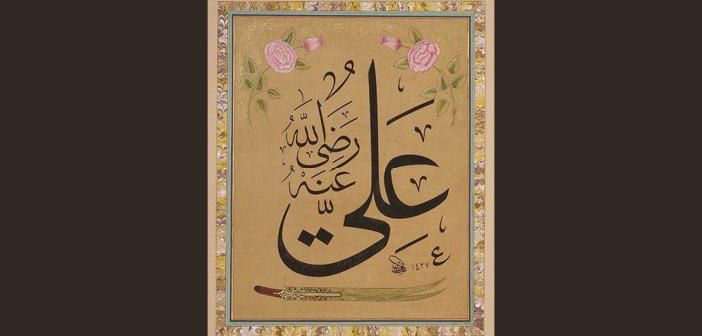 عَلِيّ
رَضِيَ اللّٰهُ
عَنْهُ
١٤٢٧